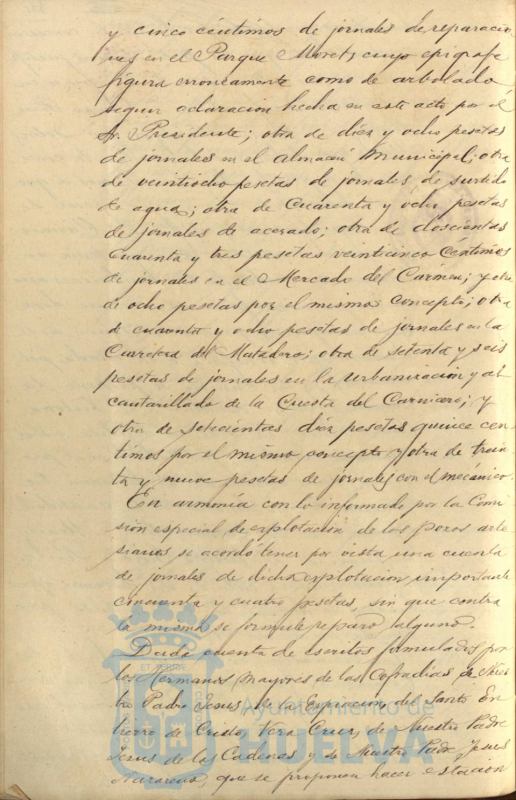 y cinco céntimos de jornales de reparacio
nes en el Parque Moret, cuyo epigrafe
figura erroneamente como de arbolado
segun aclaracion hecha en este acto por el
Sr. Presidente; otra de diez y ocho pesetas
de jornales en el almacen Municipal; otra
de veintiocho pesetas de jornales, de surtido
de agua; otra de cuarenta y ocho pesetas
de jornales de acerado; otra de doscientas
cuarenta y tres pesetas veinticinco céntimos
de jornales en el Mercado del Carmen; y otra
de ocho pesetas por el mismo concepto; otra
de cuarenta y ocho pesetas de jornales en la
Carretera del Matadero; otra de setenta y seis
pesetas de jornales en la urbanizacion y al
cantarillado de la Cuesta del Carnicero; y
otra de setecientas diez pesetas quince cen
timos por el mismo concepto y otra de trein
ta y nueve pesetas de jornales con el mecánico.
En armonia con lo informado por la Comi
sion especial de explotacion de los pozos arte
sianos se acordó tener por vista una cuenta
de jornales de dicha explotacion importante
cincuenta y cuatro pesetas, sin que contra
la misma se formule reparo alguno.
Dada cuenta de escritos formulados por
los Hermanos mayores de las Cofradias de Nues
tro Padre Jesus de la Expiracion, del Santo En
tierro de Cristo, Vera Cruz, de Nuestro Padre
Jesus de las Cadenas y de Nuestro Padre Jesus
Nazareno, que se proponen hacer estacion
Ayuntamiento de
HUELVA